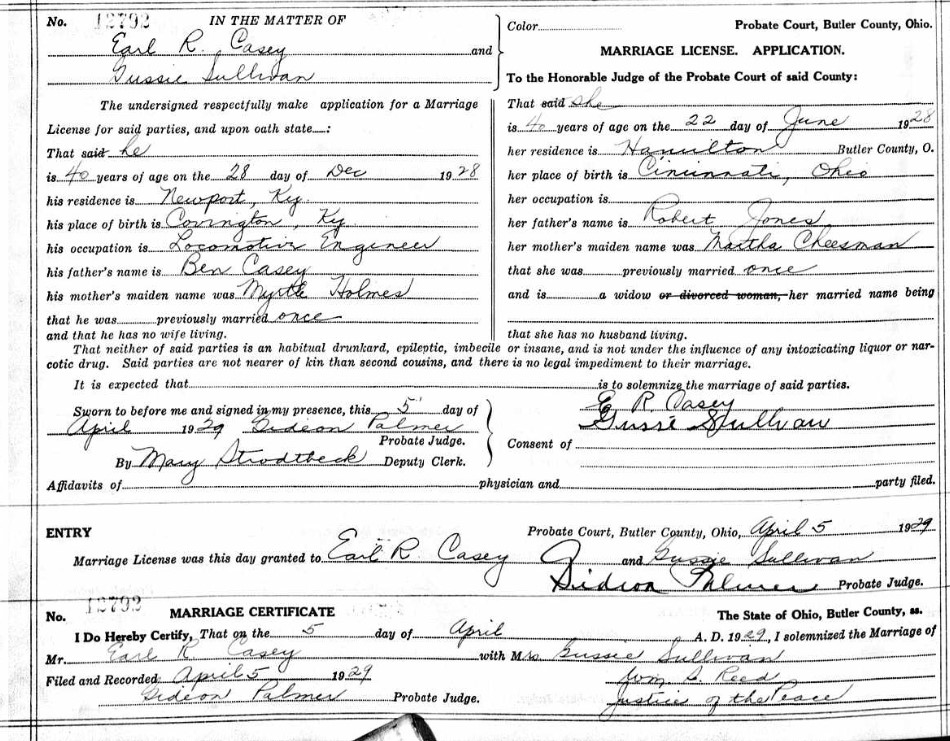 No. 12792 IN THE MATTER OF
Earl R. Casey and
Gussie Sullivan
The undersigned respectfully make application for a Marriage
License for said parties, and upon oath state :
That said he
is 40 years of age on the 28 day of Dec 1928
his residence is Newport, Ky.
his place of birth is Covington, Ky
his occupation is Locomotive Engineer
his father's name is Ben Casey
his mother's maiden name was Myrtle Holmes
that he was previously married once
and that he has no wife living.
Color Probate Court, Butler County, Ohio.
MARRIAGE LICENSE. APPLICATION.
To the Honorable Judge of the Probate Court of said County:
That said she
is 40 years of age on the 22 day of June 1928
her residence is Hamilton Butler County, O.
her place of birth is Cincinnati, Ohio
her occupation is
her father's name is Robert Jones
her mother's maiden name was Martha Cheesman
that she was previously married once
and is a widow or divorced woman, her married name being
that she has no husband living.
That neither of said parties is an habitual drunkard, epileptic, imbecile or insane, and is not under the influence of any intoxicating liquor or nar-
cotic drug. Said parties are not nearer of kin than second cousins, and there is no legal impediment to their marriage.
It is expected that is to solemnize the marriage of said parties.
Sworn to before me and signed in my presence, this 5 day of
April 1929 Gideon Palmer
Probate Judge.
By Mary Strodtbeck Deputy Clerk.
E R Casey
Gussie Sullivan
Consent of
Affidavits of physician and party filed.
ENTRY Probate Court, Butler County, Ohio, April 5 1929
Marriage License was this day granted to Earl R. Casey and Gussie Sullivan
Gideon Palmer Probate Judge.
No. 12792 MARRIAGE CERTIFICATE The State of Ohio, Butler County, ss.
I Do Hereby Certify, That on the 5 day of April A. D. 1929, I solemnized the Marriage of
Mr. Earl R Casey with Mrs Gussie Sullivan
Filed and Recorded April 5 1929 Wm. S. Reed
Gideon Palmer Probate Judge. Justice of the Peace